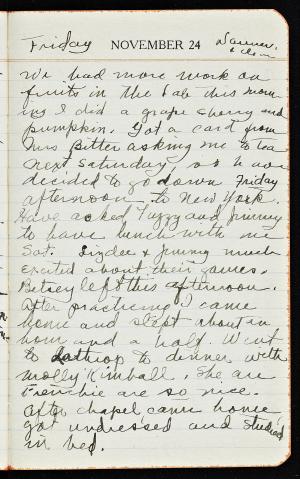 Friday NOVEMBER 24 Warmer
& clear
We had more work on
fruits in the lab this morn
ing I did a grape cherry and
pumpkin. Got a card from
Mrs Bitter asking me to tea
next Saturday, so have
decided to go down Friday
afternoon to New York.
Have asked Tuzzy and Jimmy
to have lunch with me
Sat. Lizdee & Jimmy much
excited about their games.
Betsey left this afternoon.
After practicing I came
home and slept about an
hour and a half. Went
to Lathrop to dinner with
Molly Kimball. She and
Frenchie are so nice.
After chapel, came home,
got undressed and studied
in bed.